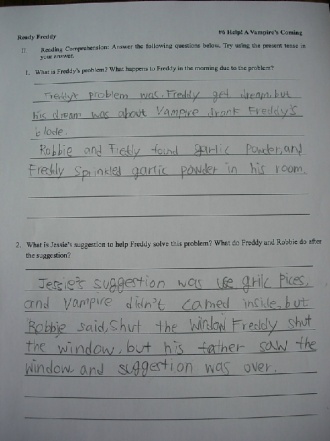 Ready Freddy
#6 Help! A Vampire's Coming
II Reading Comprehension: Answer the following questions below. Try using the present tense in
your answer.
1. What is Freddy's problem? What happens to Freddy in the morning due to the problem?
Freddy's problem was, Freddy get dream, but
his dream was about Vampire drank Freddy's
blode.
Robbie and Fredly found garlic powder, and
Fredly sprinkled garlic powder in his room.
2. What is Jessie's suggestion to help Freddy solve this problem? What do Freddy and Robbie do after
the suggestion?
Jessie's suggestion was use grilc pices,
and Vampire didn't camed inside, but
Robbie said, Shut the window Freddy shut
the window, but his father saw the
window and suggestion was over.